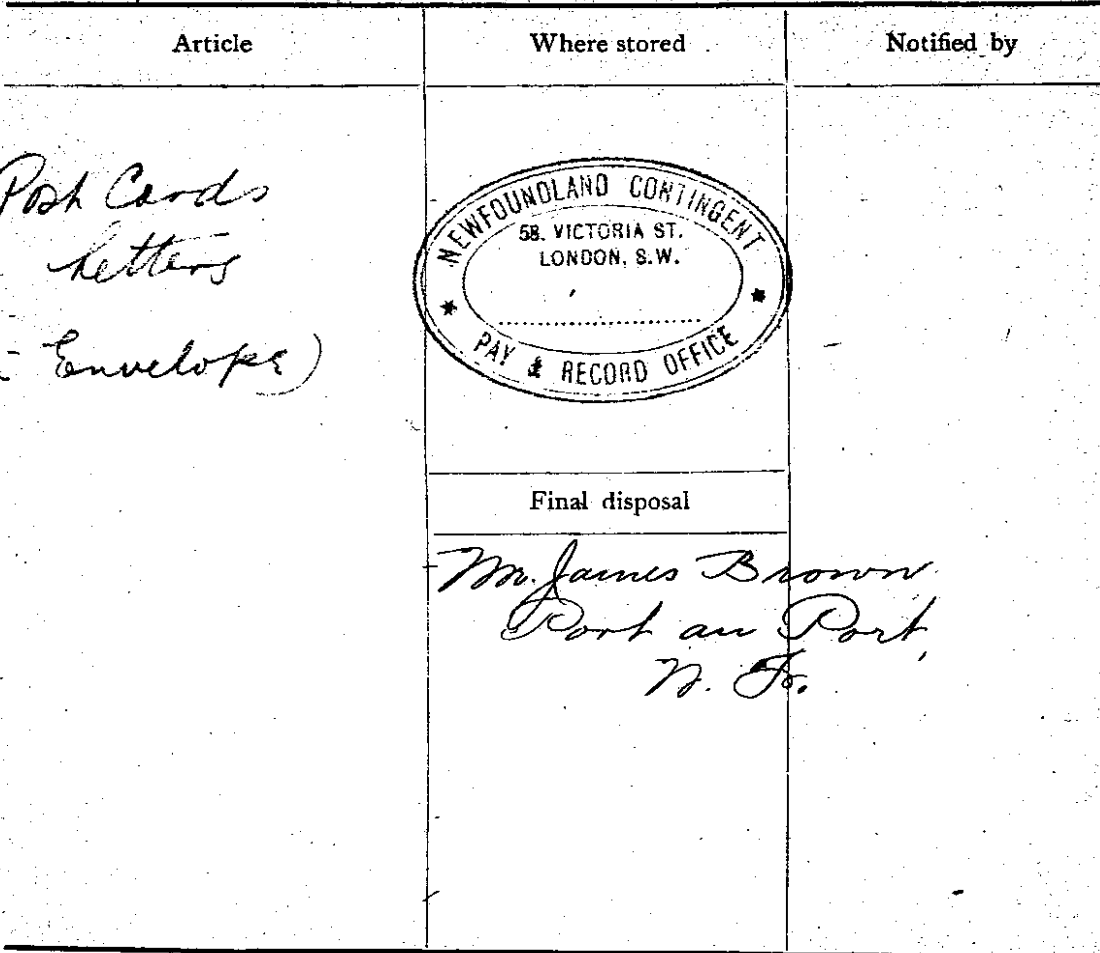 Article
Where stored
Notified by
Post Cards
Letters
Envelope)
NEWFOUNDLAND CONTINGENT
58. VICTORIA ST.
LONDON, S.W.
* PAY & RECORD OFFICE *
Final disposal
Mr. James Brown
Port au Port,
N. Fd.